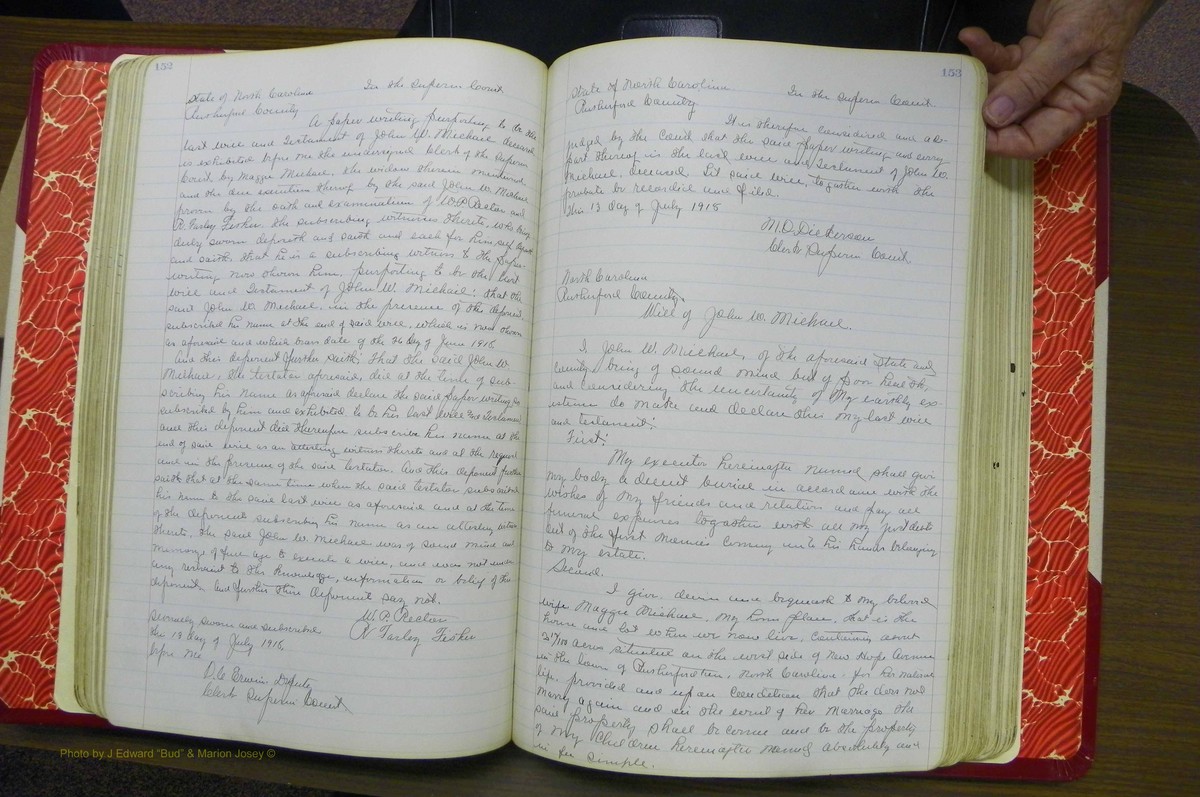 152
State of North Carolina In the Superior Court
Rutherford County
A paper writing purporting to be the
last will and Testament of John W. Michael deceased
is exhibited before me the undersigned Clerk of the Superior
Court by Maggie Michael, the widow therein mentioned
and the due execution thereof by the said John W. Michael
proven by the oath and examination of W.P. Rector and
R. Farley Fisher, the subscribing witnesses thereto, who being
duly sworn deposeth and saith and each for himself deposeth
and saith that he is a subscribing witness to the paper
writing now shown him, purporting to be the last
will and Testament of John W. Michael: that the
said John W. Michael in the presence of the deponent,
subscribed his name at the end of said will, which is now shown
as aforesaid and which bears date of the 26 day of June 1918
And this deponent further saith: That the said John W.
Michael, the testator aforesaid, did at the time of sub-
scribing his name as aforesaid declare the said paper writing so
subscribed by him and exhibited to be his last will and Testament
and this deponent did thereupon subscribe his name at the
end of said will as an attesting witness thereto and at the request
and in the presence of the said testator. And this deponent further
saith that at the same time when the said testator subscribed
his name to the said last will as aforesaid and at the time
of the deponent subscribing his name as an attesting witness
thereto, the said John W. Michael was of sound mind and
memory of full age to execute a will, and was not under
any restraint to the knowledge, information or belief of the
deponent. And further these deponents say not.
W.P. Rector
R Farley Fisher
Severally sworn and subscribed
this 13 day of July 1918
before me
Deputy
Clerk Superior Court
153
State of North Carolina In the Superior Court
Rutherford County
It is therefore considered and ad-
judged by the Court that the said paper writing and every
part thereof is the last will and Testament of John W.
Michael, deceased. Let said will, together with the
probate be recorded and filed.
This 13 day of July 1918
M.O. Dickerson
Clerk Superior Court
North Carolina
Rutherford County.
Will of John W. Michael.
I John W. Michael, of the aforesaid State and
County being of sound mind but of poor health,
and considering the uncertainty of my earthly ex-
istence do make and declare this my last will
and testament:
First:
My executor hereinafter named shall give
my body a decent burial in accordance with the
wishes of my friends and relation and pay all
funeral expenses together with all my just debts
out of the first monies coming into his hands belonging
to my estate.
Second.
I give devise and bequeath to my beloved
wife Maggie Michael, my home place, that is the
house and lot where we now live, containing about
acres situated on the west side of New Hope Avenue
in the town of Rutherfordton, North Carolina for her natural
life, provided and upon condition that she does not
marry again and in the event of her marriage the
said property shall become and be the property
of my children hereinafter named absolutely and
in fee simple.
Photo by J Edward "Bud" & Marion Josey ©